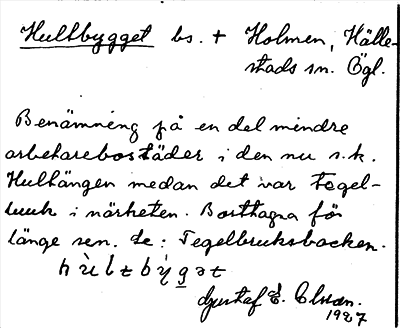 Hultbygget bs. + Holmen, Hälle-
stads sn. Ögl.
Benämning på en del mindre
arbetarebostäder i den nu s.k.
Hultängen medan det var tegel-
bruk i närheten. Borttagna för
länge sen. Se: Tegelbruksbacken.
hùltbýgət
Gustaf E. Olsson.
1927